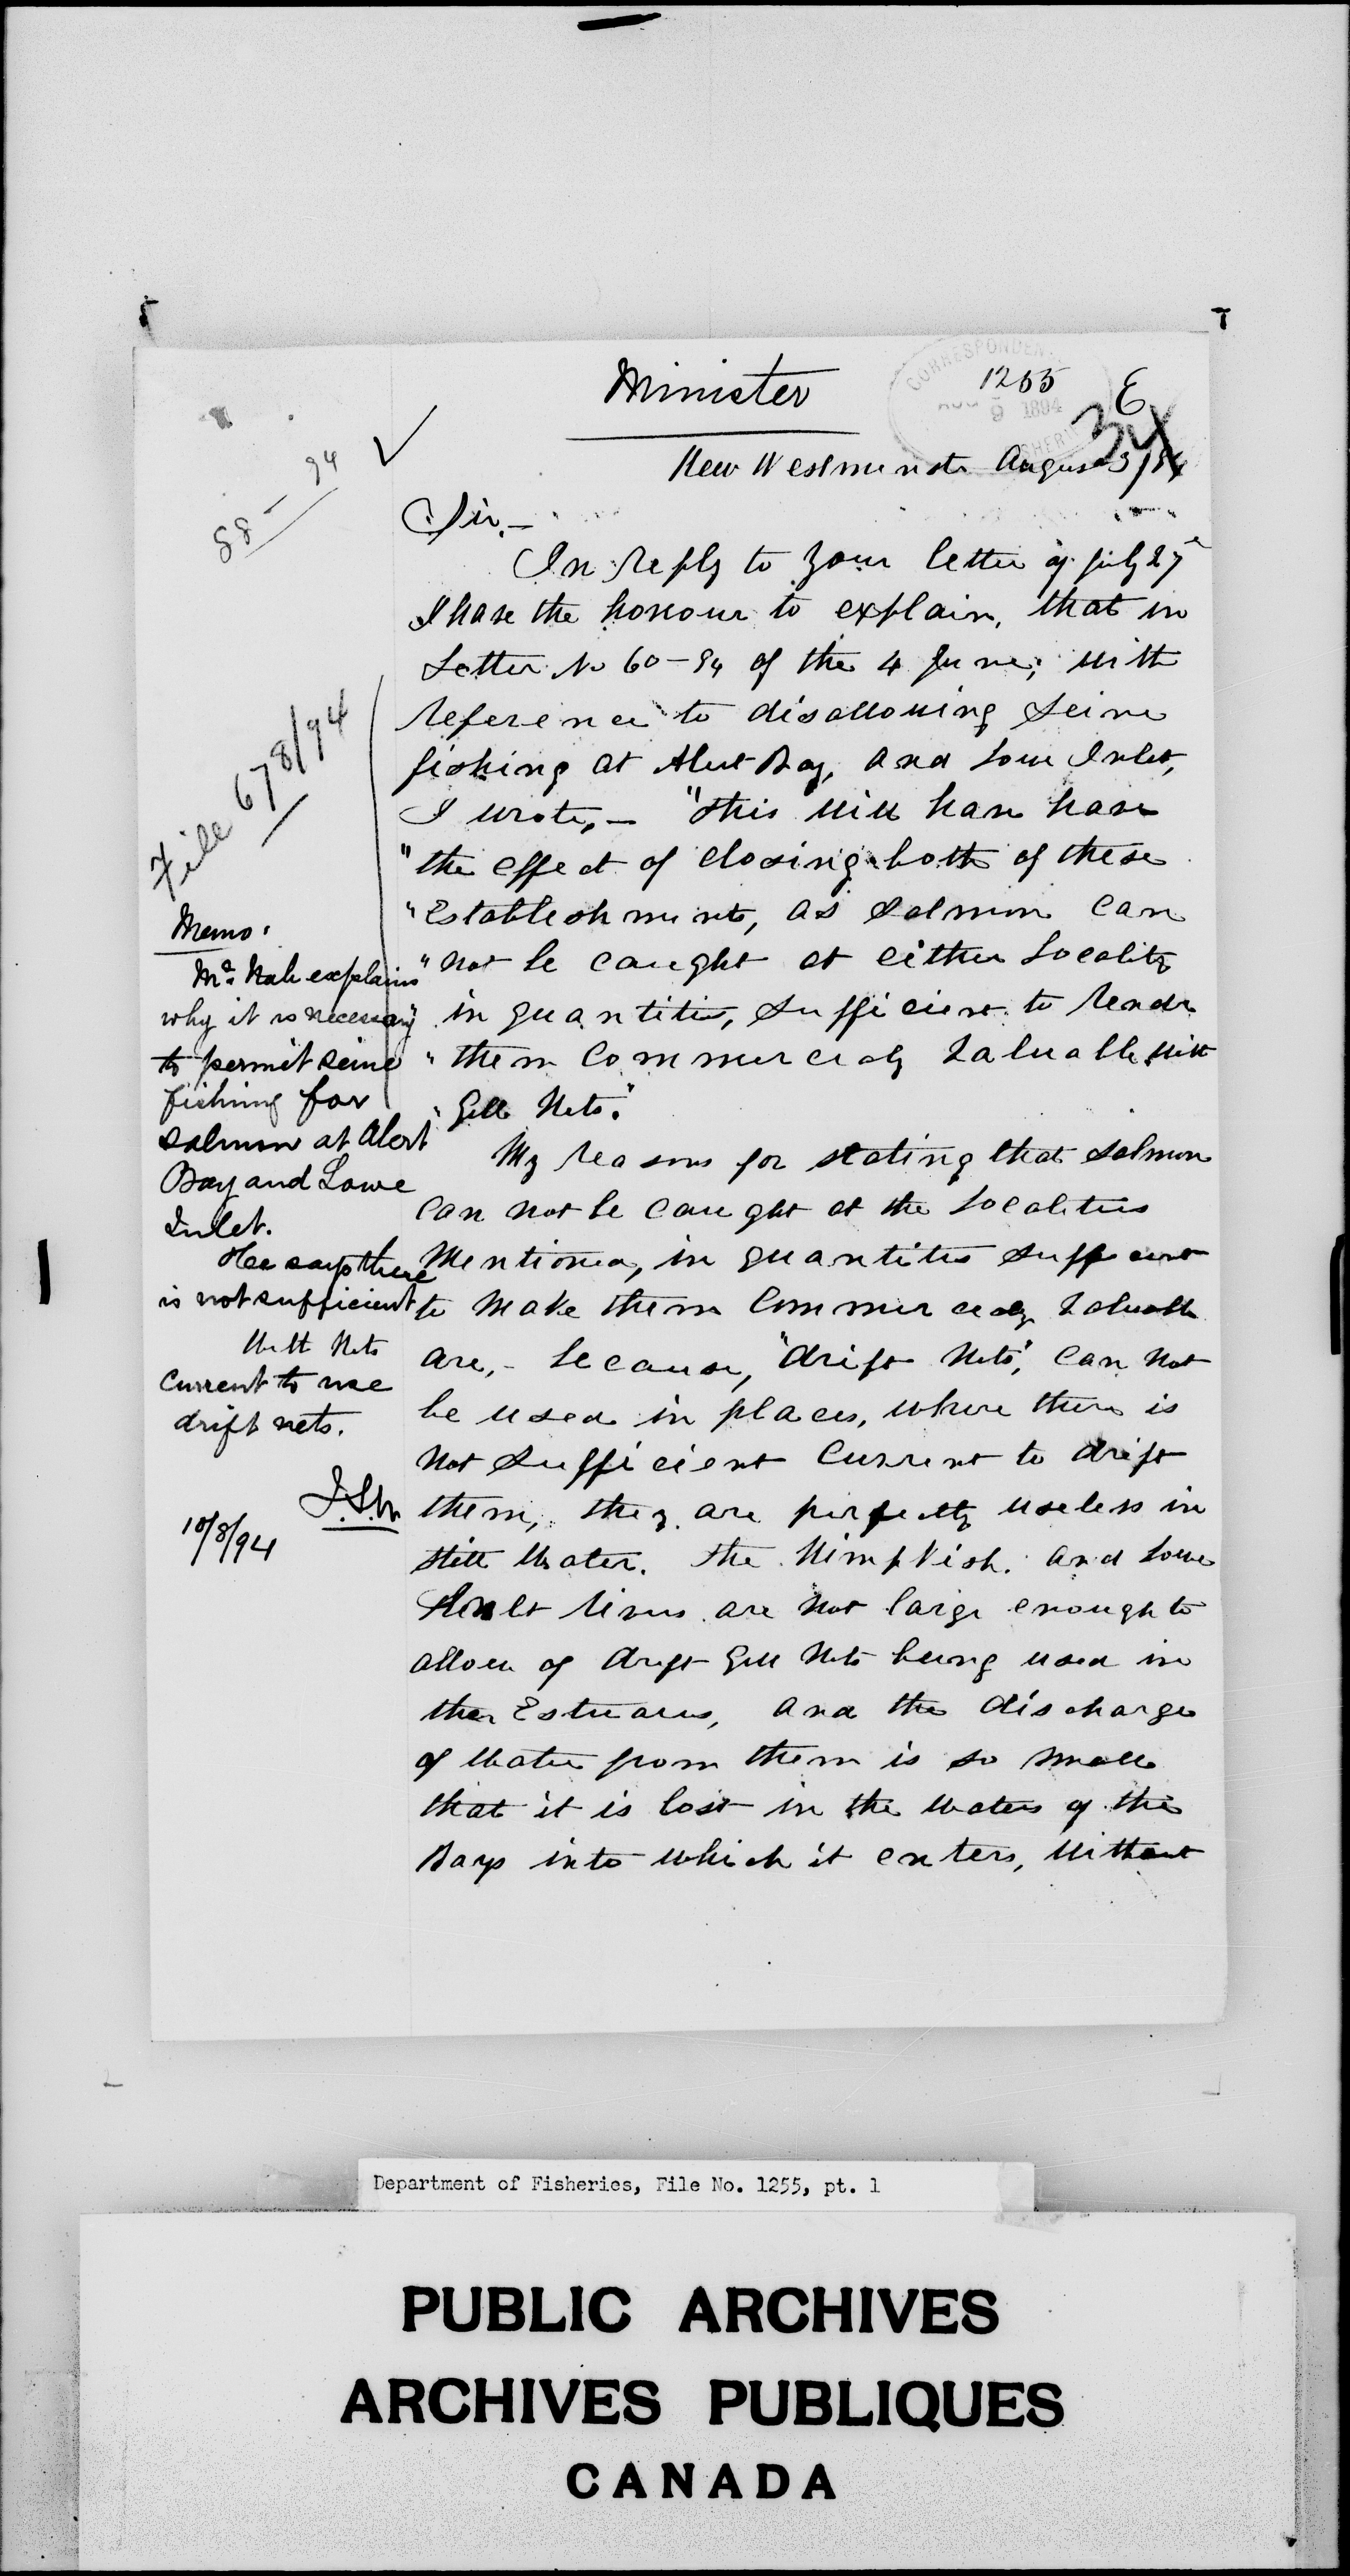 Minister
1255
E
34
CORRESPONDEN
AUG 9 1894
FISHERI
New Westminster August 3/94
88-94
Sir,-
In reply to your letter of July 27
I have the honour to explain, that in
Letter No 60-94 of the 4 June, with
reference to disallowing Seine
fishing at Alert Bay, and Lowe Inlet,
I wrote,- "this will have have
"the effect of closing both of these
"Establishments, as Salmon can
"not be caught at either Locality
"in quantities, sufficient to render
"them Commercialy Valuable with
"Gill Nets."
My reasons for stating that Salmon
Can not be caught at the Localities
Mentioned, in quantities sufficient
to make them Commercialy Valuable
are,- because, "drift Nets", can not
be used in places, where there is
not sufficient Current to drift
them, they are perfectly useless in
still water. The Nimpkish. and Lowe
Inlet rivers are not large enough to
allow of drift Gill Nets being used in
their Estuaries, and the discharge
of water from them is so small
that it is lost in the waters of the
Bays into which it enters, without
File 678/94
Memo.
Mr. explains
why it is necessary
to permit seine
fishing for
salmon at Alert
Bay and Lowe
Inlet.
He says there
is not sufficient
Nets
current to use
drift nets.
10/8/94
Department of Fisheries, File No. 1255, pt. 1
PUBLIC ARCHIVES
ARCHIVES PUBLIQUES
CANADA